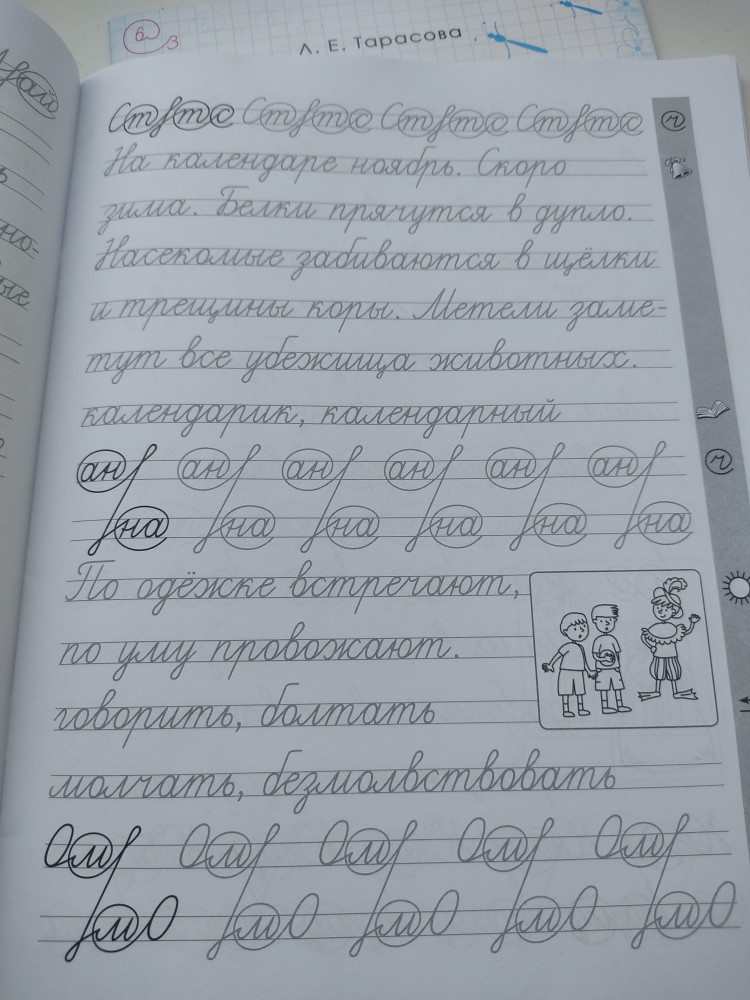 Л. Е. Тарасова
На календаре ноябрь. Скоро
зима. Белки прячутся в дупло.
Насекомые забиваются в щёлки
и трещины коры. Метели заме-
тут все убежища животных.
календарик, календарный
ан ан ан ан ан ан
на на на на на на
По одёжке встречают,
по уму провожают.
говорить, болтать
молчать, безмолвствовать